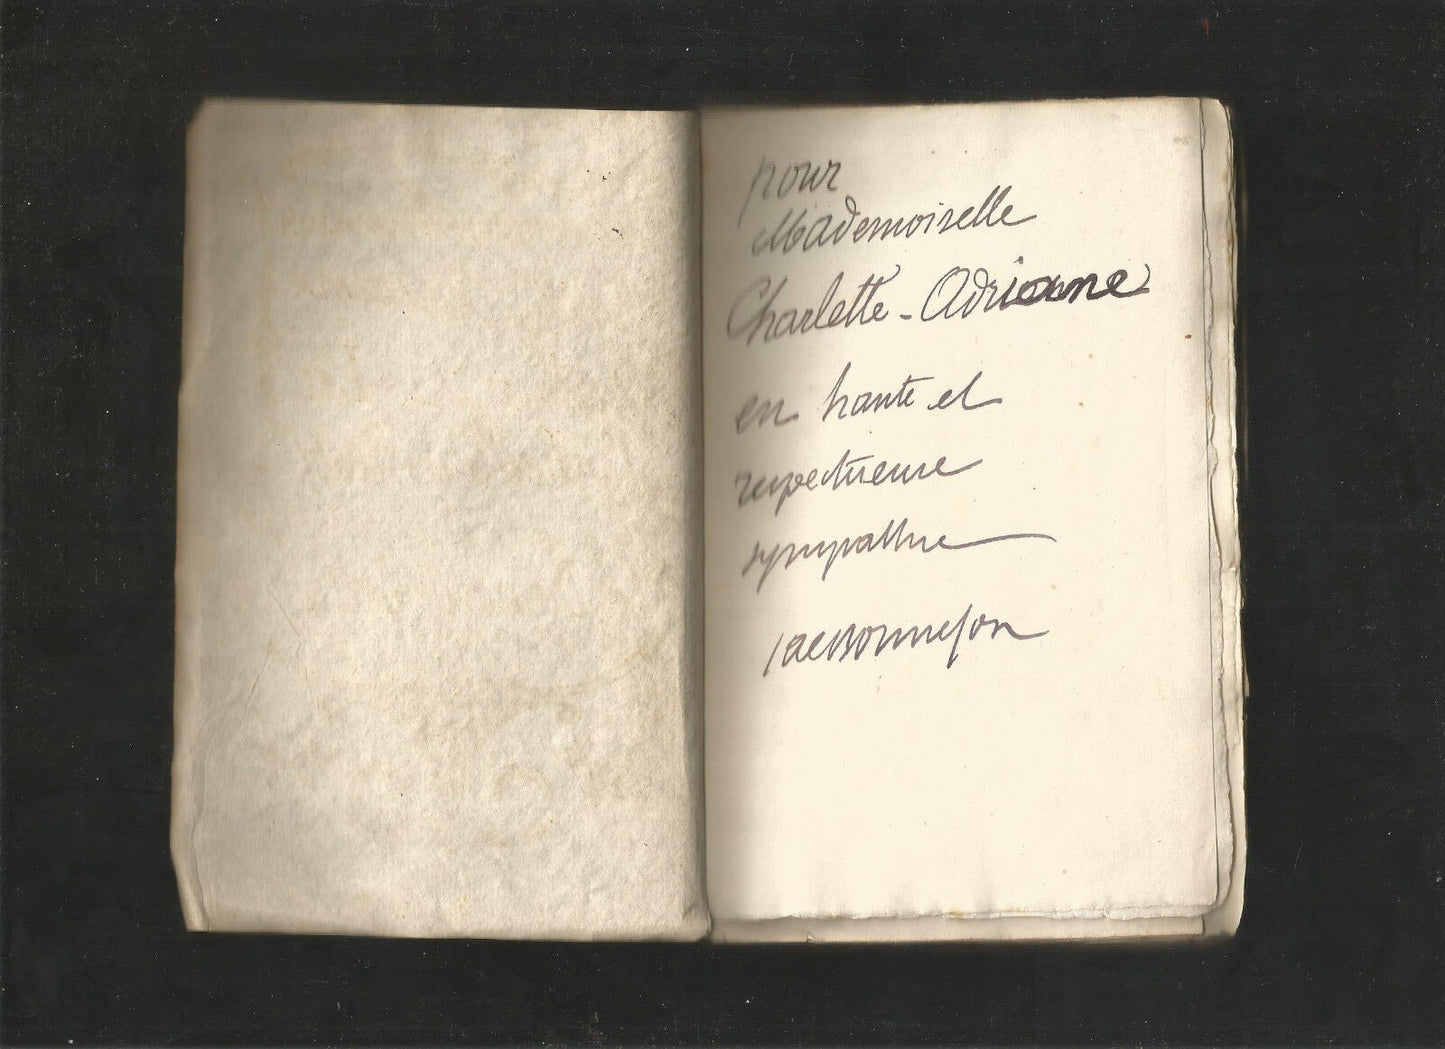 pour
Mademoiselle
Charlette-Adrianne
en haute et
respectueuse
sympathie